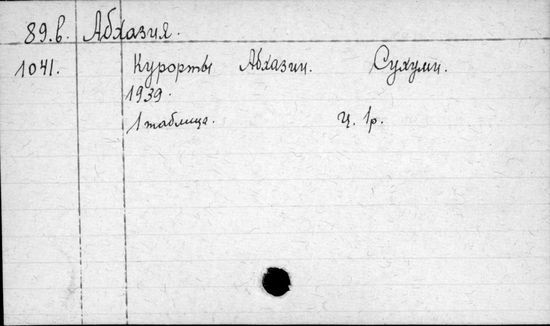 89.в. Абхазия.
1041. Курорты Абхазии. Сухуми.
1939.
1 таблица. Ц. 1р.